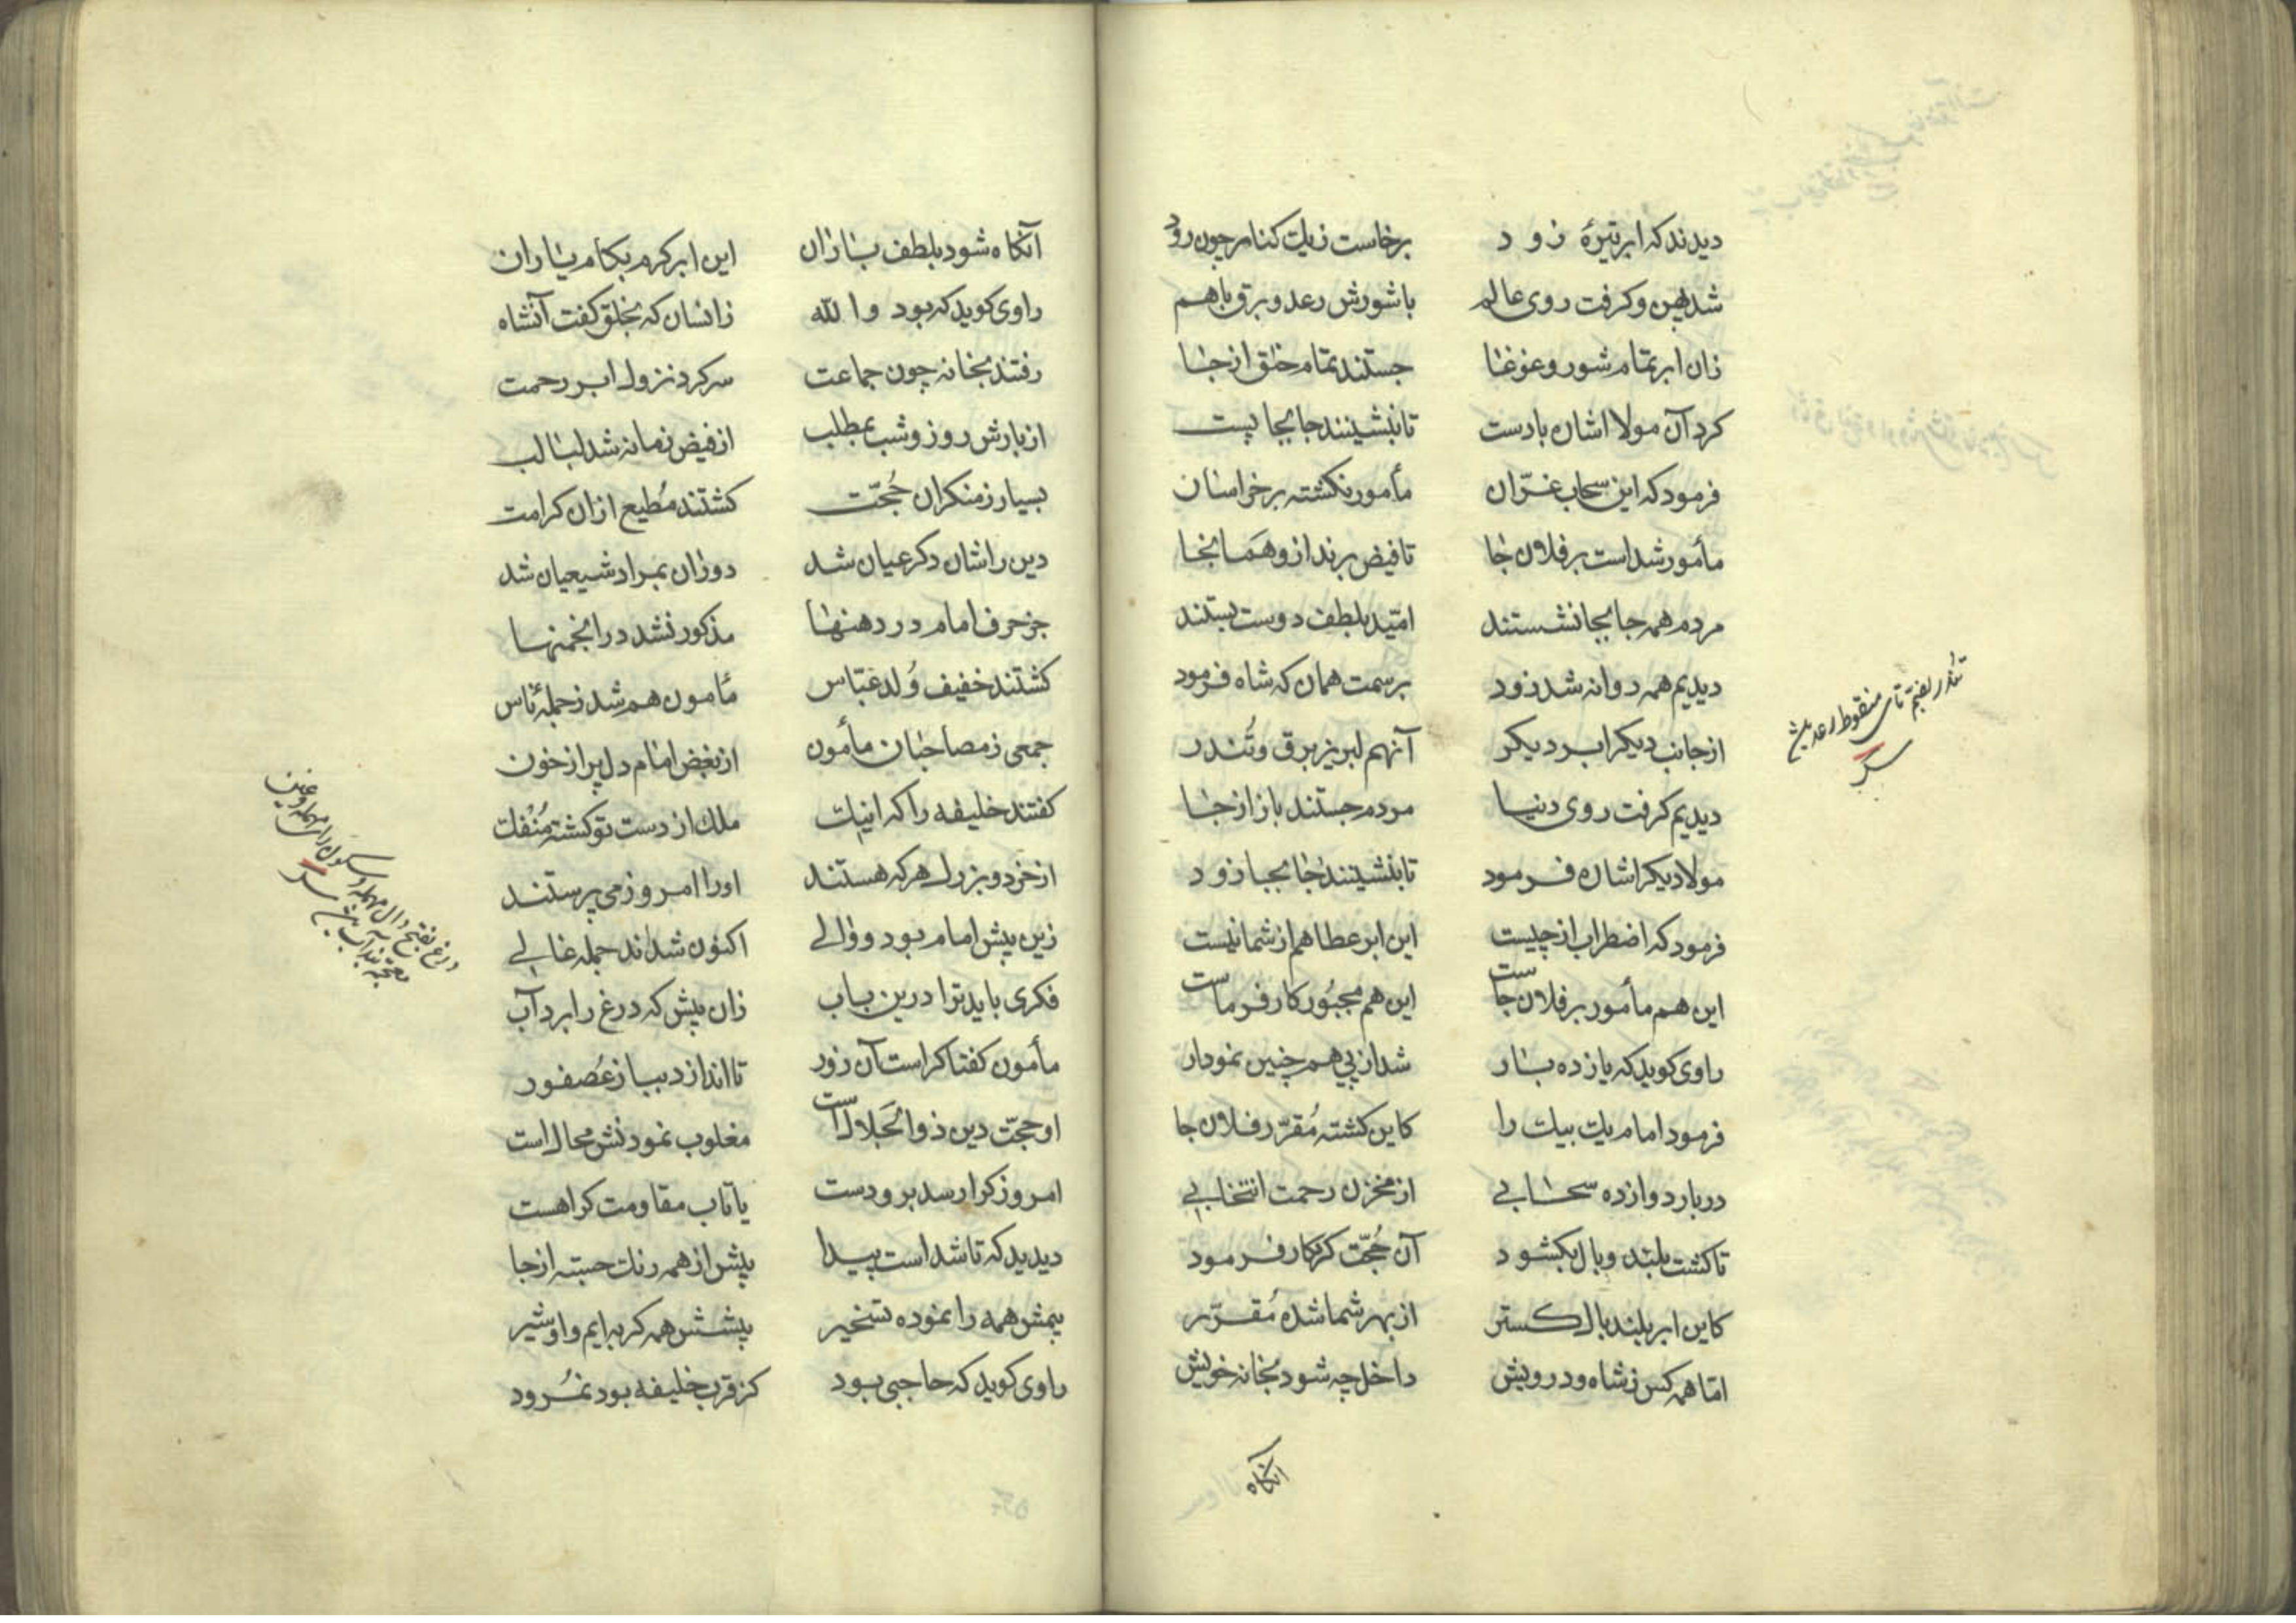 دیدند که ابر تیرهٔ زود برخاست زیک کنار چون رود
شد پهن و کرفت روی عالم با شورش رعد و برق باهم
زان ابر تمام شور و غوغا جستند تمام خلق از جا
کرد آن مولا اشاره با دست تا بنشینند جابجا پست
فرمود که این سحاب غرّان مأمور نکشته بر خراسان
مأمور شد است بر فلان جا تا فیض برند ازو هَمانجا
مردم همه جابجا نشستند امّید بلطف دوست بستند
دیدیم همه روانه شد زود بر سمت همان که شاه فرمود
از جانب دیکر ابر دیکر آنهم لبریز برق و تُندر
دیدیم کرفت روی دنیا مردم جستند باز از جا
مولا دیکر اشاره فرمود تا بنشینند جابجا زود
فرمود که اضطراب از چیست این ابر عطا هم از شما نیست
این هم مأمور بر فلان جاست این هم مجبُور کارفرماست
راوی کوید که یازده بار شد از پی هم چنین نمودار
فرمود امام یک بیک را کاین کشته مُقرّر فلان جا
در بار دوازده سحابی از مخزن رحمت انتخابی
تا کشت بلند و بال بکشود آن حُجّت کردکار فرمود
کاین ابر بلند بال کستر از بهر شما شده مُقرّر
امّا همه کس ز شاه و درویش داخل چه شود بخانه خویش
انکاه
تندر بضم تای منقوط رعد
آنکاه شود بلطف باران این ابر کرم بکام یاران
راوی کوید که بود والله زانسان که بخلق کفت آنشاه
رفتند بخانه چون جماعت سر کرد نزول ابر رحمت
از بارش روز و شب بمطلب از فیض زمانه شد لبالب
بسیار ز منکران حُجّت کشتند مُطیع ازان کرامت
دین را شان دکر عیان شد دوران بمراد شیعیان شد
جز حرف امام در دهنها مذکور نشد در انجمنها
کشتند خفیف وُلد عبّاس مأمون هم شد ز جملهٔ ناس
جمعی ز مصاحبان مأمون از بغض امام دل پر از خون
کفتند خلیفه را که اینک ملک از دست تو کشته مُنفک
از خرد و بزرک هر که هستند او را امروز می پرستند
زین پیش امام بود و والی اکنون شداند جمله غالی
فکری باید ترا درین باب زان پیش که درغ را برد آب
مأمون کفتا کراست آن زور تا اندازد بباز عُصفور
او حجّت دین ذوالجَلال است مغلوب نمودنش محال است
امروز کرا رسد برو دست یا تاب مقاومت کرا هست
دیدید که تا شد است پیدا پیش از همه رنک جسته از جا
بیمش همه را نموده تسخیر پیشش همه کربه ایم و او شیر
راوی کوید که حاجبی بود کز قرب خلیفه بود نمرود
درغ بفتح دال مهمله و سکون رای مهمله و غین معجمه بند آب